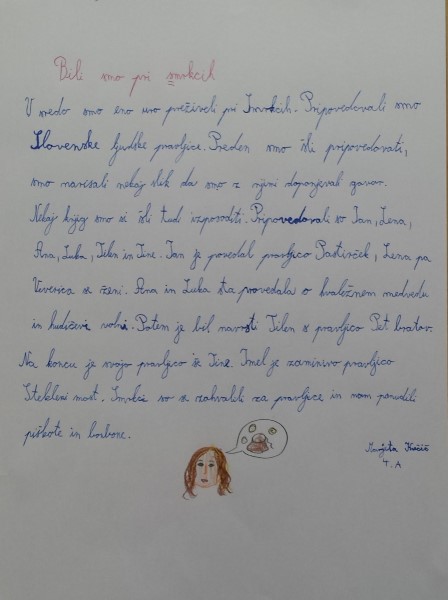 Bili smo pri smrkcih
V sredo smo eno uro preživeli pri Smrkcih. Pripovedovali smo
Slovenske ljudske pravljice. Preden smo šli pripovedovati,
smo narisali nekaj slik da smo z njimi doponjevali govor.
Nekaj knjig smo si šli tudi izposoditi. Pripovedovali so Jan, Lena,
Ana, Luka, Tilen in Tine. Jan je povedal pravljico Pastirček, Lena pa
Veverica se ženi. Ana in Luka sta povedala o hvaležnem medvedu
in hudičevi volni. Potem je bil na vrsti Tilen s pravljico Pet bratov.
Na koncu je svojo pravljico še Tine. Imel je zanimivo pravljico
Stekleni most. Smrkci so se zahvalili za pravljice in nam ponudili
piškote in bonbone.
4. A